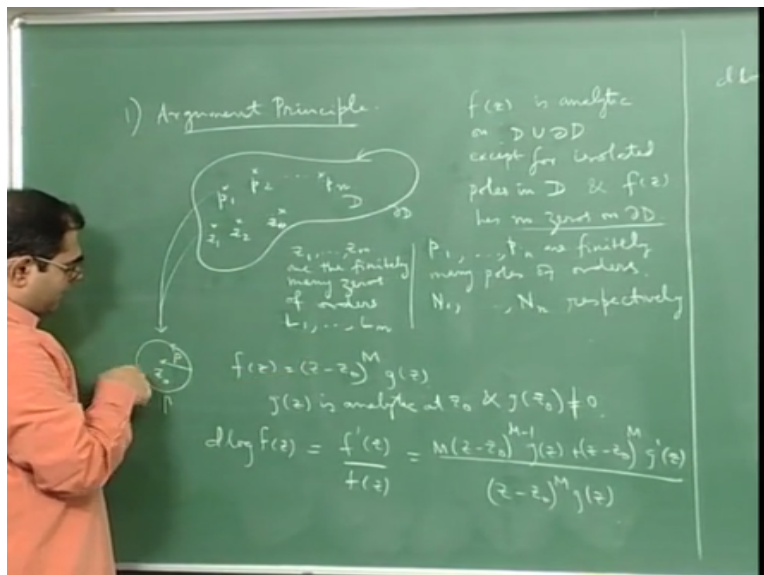 1) Argument Principle.
f(z) is analytic
on D ∪ ∂D
except for isolated
poles in D & f(z)
has no zeros on ∂D.
p₁ p₂ ... pₙ D ∂D
z₁ z₂ zₘ
z₁, ..., zₘ
are the finitely
many zeros
of orders
L₁, .., Lₘ
p₁, ..., pₙ are finitely
many poles of orders.
N₁, .., Nₙ respectively
z₀ ρ
f(z) = (z-z₀)^M g(z)
g(z) is analytic at z₀ & g(z₀) ≠ 0.
d log f(z) = f'(z)/f(z) = (M(z-z₀)^(M-1) g(z) + (z-z₀)^M g'(z))/((z-z₀)^M g(z))